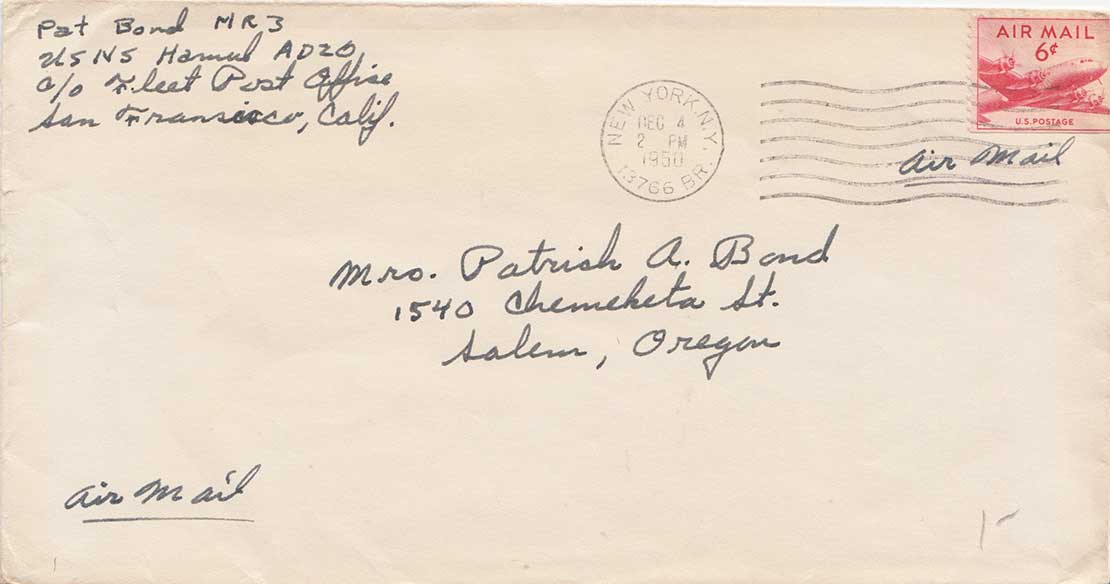 Pat Bond MR3
USNS Hamul AD20
c/o Fleet Post Office
San Francisco, Calif.
NEW YORK, N.Y.
DEC 4
2 PM
1950
13766 BR.
AIR MAIL
6¢
U.S. POSTAGE
Air Mail
Mrs. Patrick A. Bond
1540 Chemeketa St.
Salem, Oregon
Air Mail